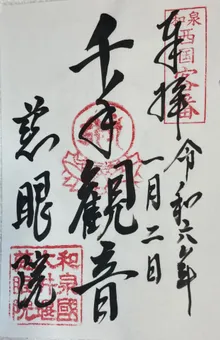 奉拝
令和六年
一月二日
和泉
西国客番
千手観音
慈眼院
和泉國